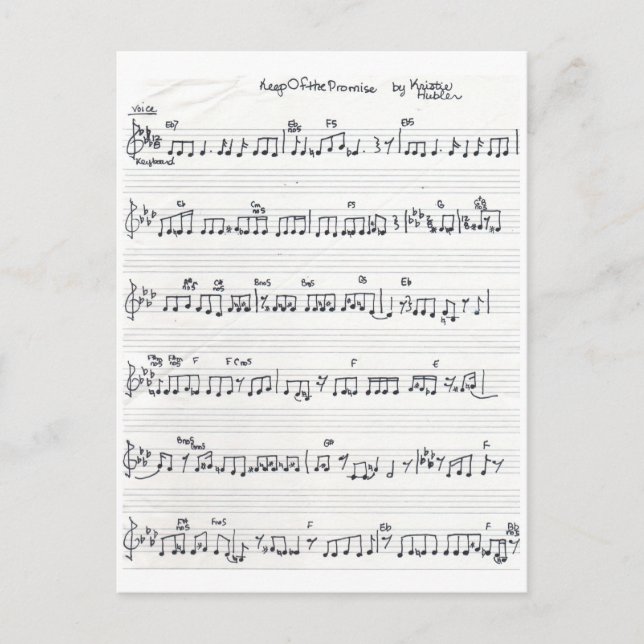 Keep Of the Promise by Kristie Hubler
Voice
Eb7 Eb no5 F5 Eb5
12 8
Keyboard
Eb Cm no5 F5 G
no5 C# no5 Bno5 Bno5 G5 Eb
F#m no5 F#m no5 F F Cno5 F E
Bno5 no5 G# F
F# no5 Fno5 F Eb F Bb no5